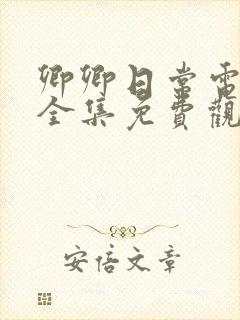 卿卿日常電
全集免費觀
安信文章